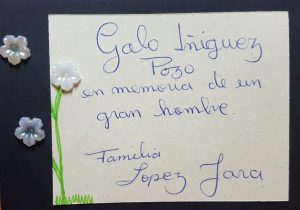 Galo Iñiguez
Pozo
en memoria de un
gran hombre.
Familia
Lopez Jara